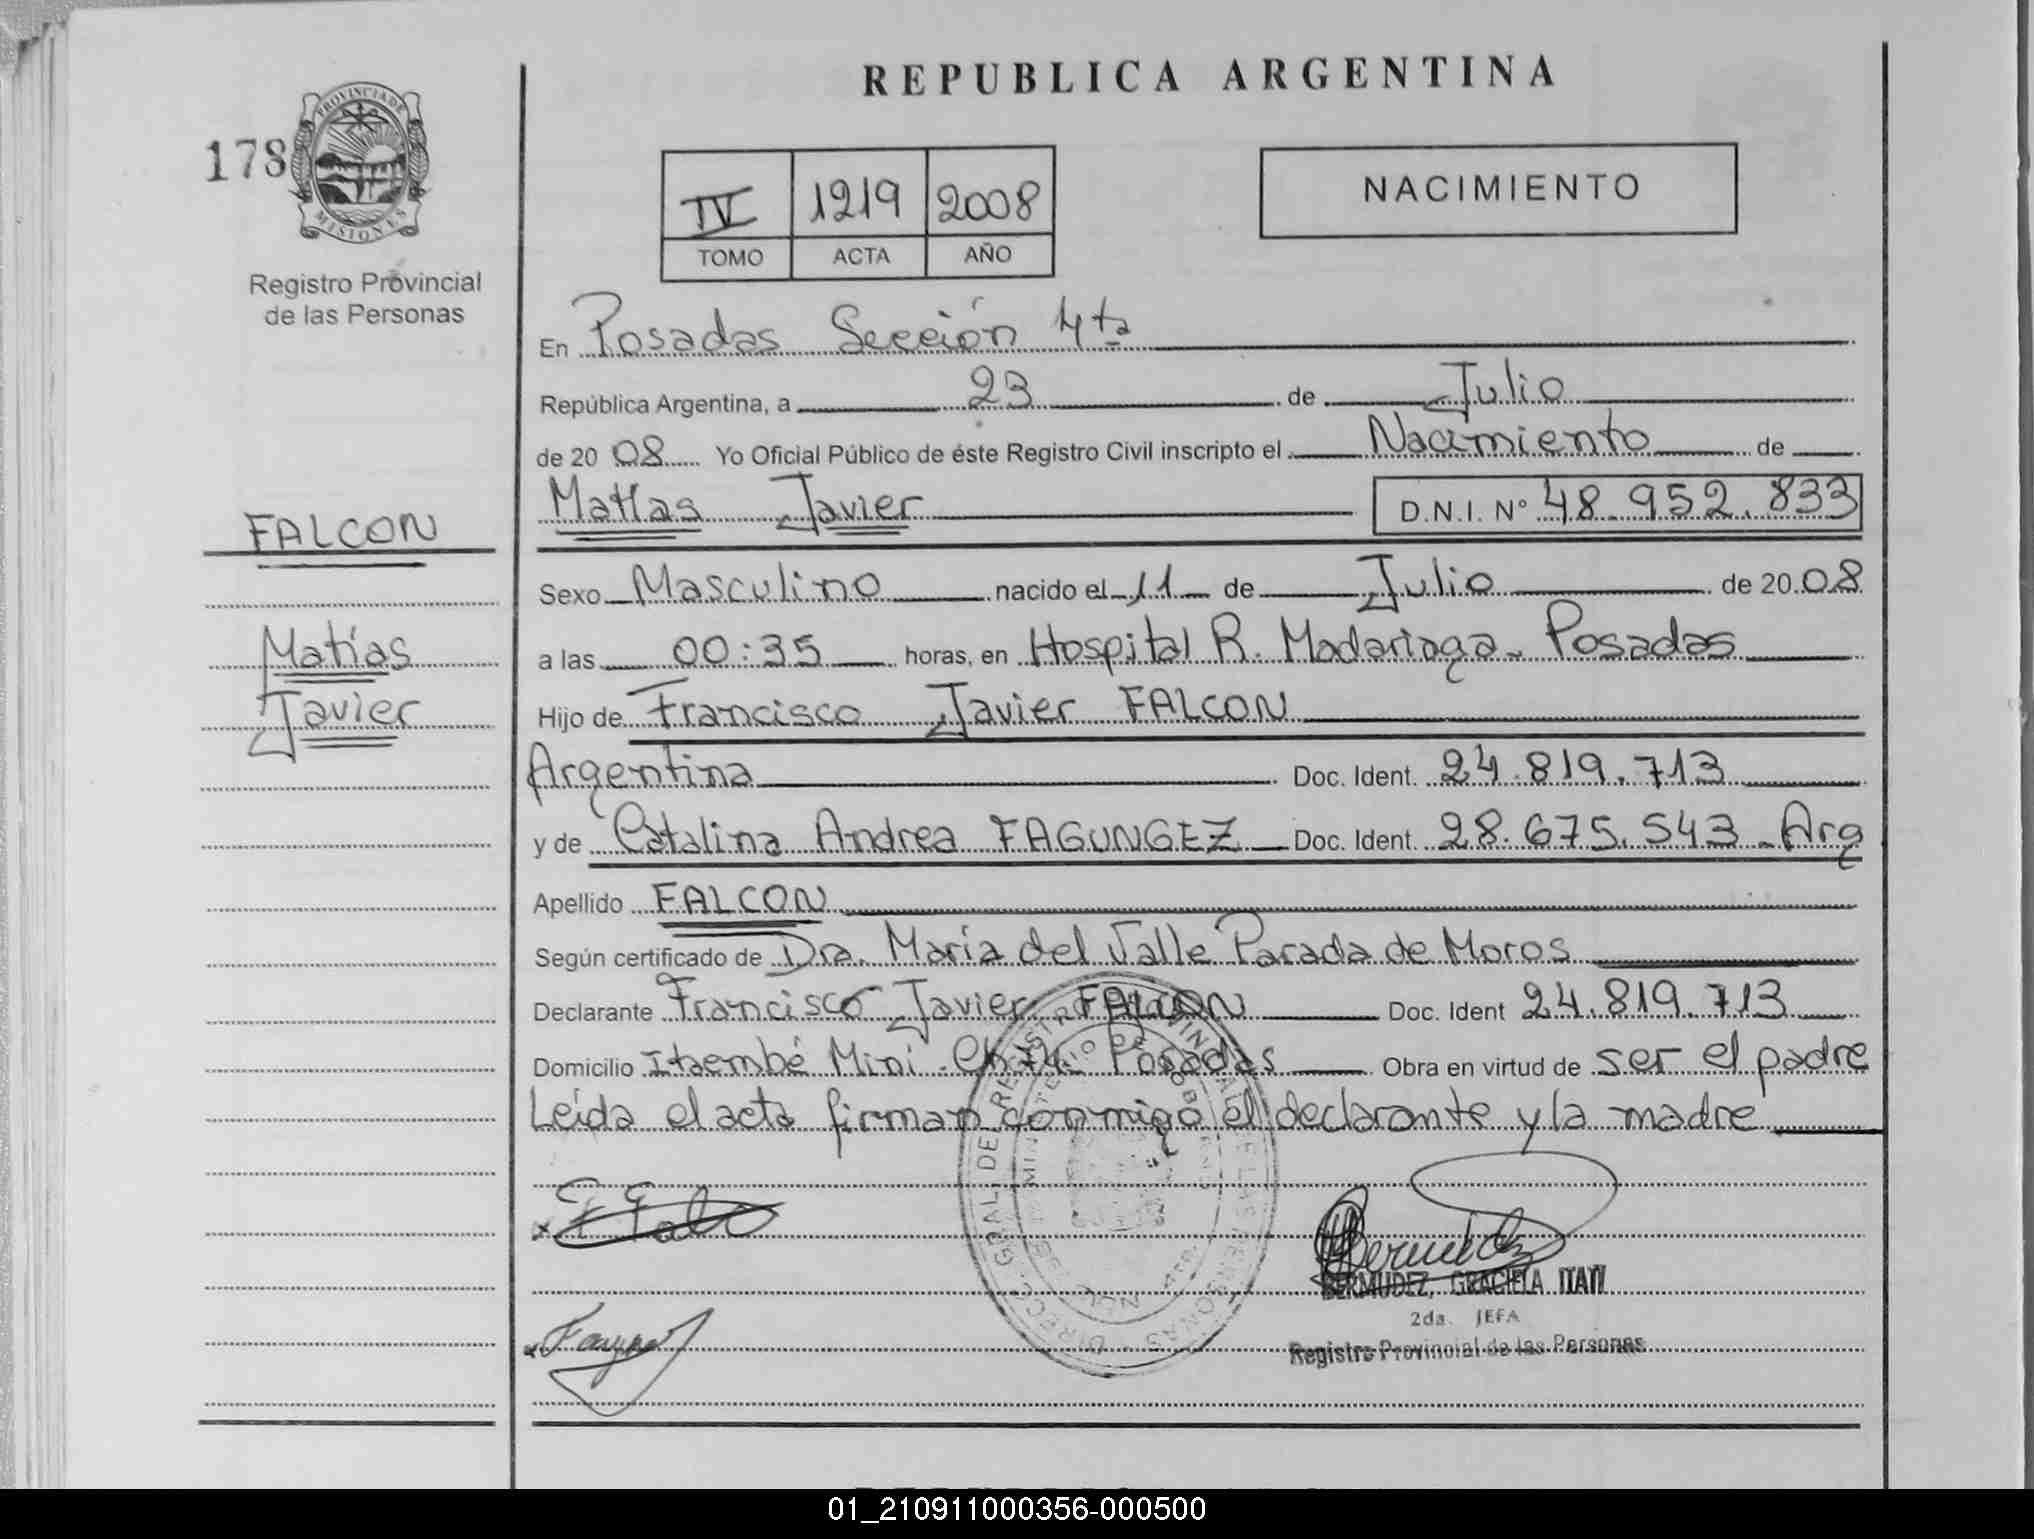 REPUBLICA ARGENTINA
178
PROVINCIA DE
MISIONES
Registro Provincial
de las Personas
IV 1219 2008
TOMO ACTA AÑO
NACIMIENTO
En Posadas Sección 4ta
República Argentina, a 23 de Julio
de 2008 Yo Oficial Público de éste Registro Civil inscripto el Nacimiento de
Matías Javier D.N.I. N° 48.952.833
FALCON
Matías
Javier
Sexo Masculino nacido el 11 de Julio de 2008
a las 00:35 horas, en Hospital R. Madariaga - Posadas
Hijo de Francisco Javier FALCON
Argentina Doc. Ident. 24.819.713
y de Catalina Andrea FAGUNGEZ Doc. Ident. 28.675.543 - Arg
Apellido FALCON
Según certificado de Dra. María del Valle Parada de Moros
Declarante Francisco Javier FALCON Doc. Ident 24.819.713
Domicilio Itaembé Mini - Posadas Obra en virtud de ser el padre
Leída el acta firman conmigo el declarante y la madre
BERMUDEZ, GRACIELA ITATI
2da. JEFA
Registro Provincial de las Personas
01_210911000356-000500